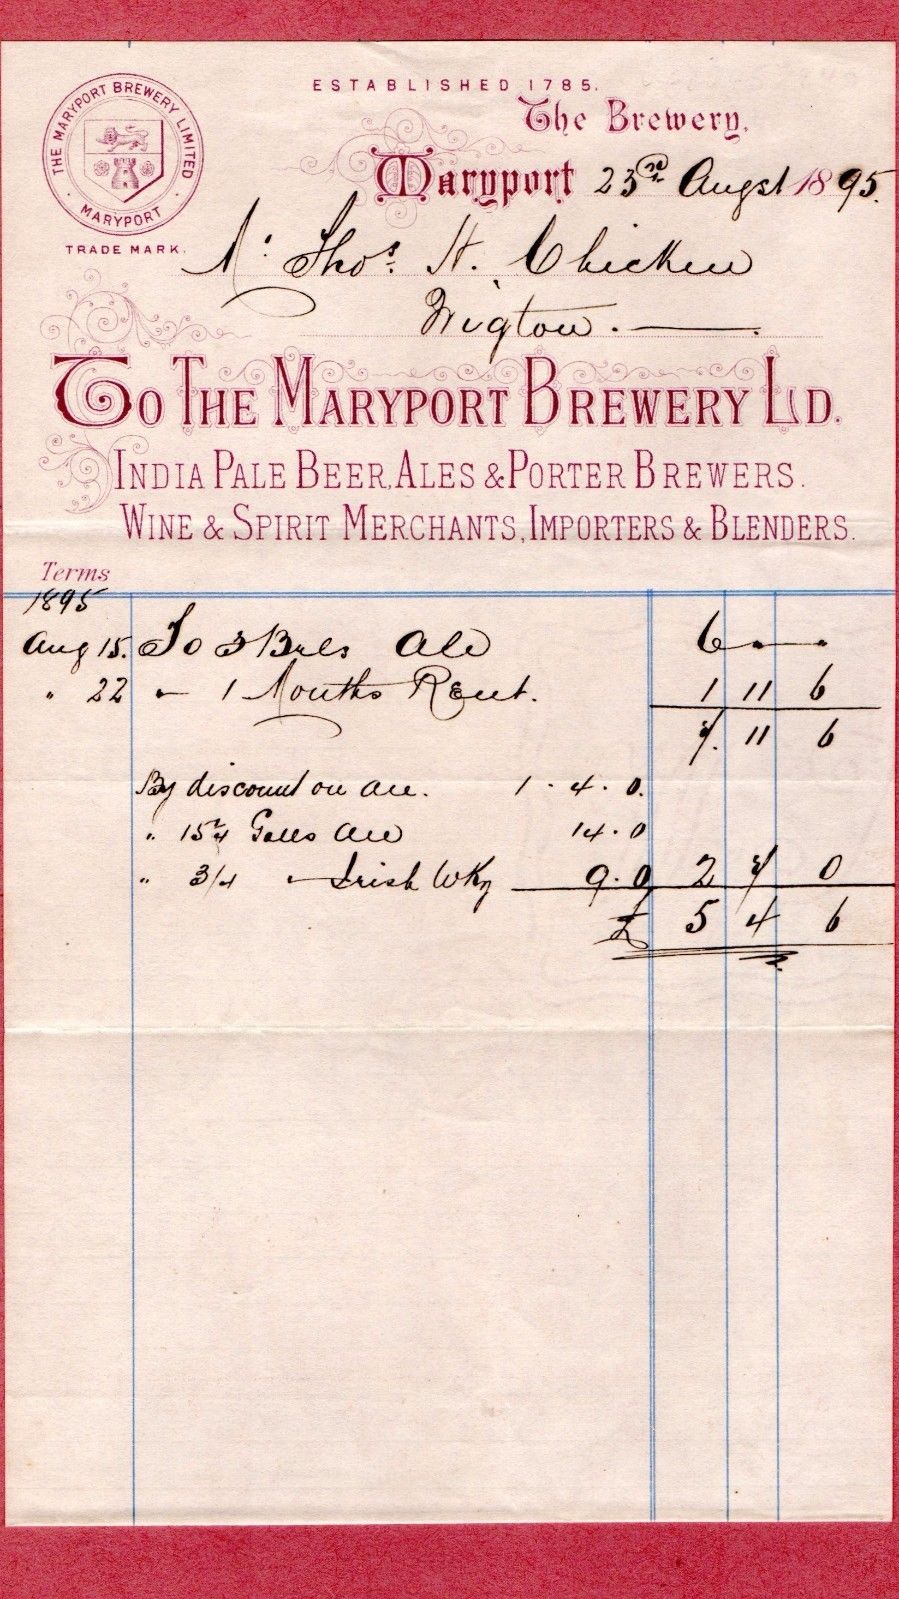 THE MARYPORT BREWERY LIMITED
· MARYPORT ·
TRADE MARK.
ESTABLISHED 1785.
The Brewery,
Maryport 23rd Augst 1895.
Mr. Thos. H. Chicken
Wigton.
To THE MARYPORT BREWERY LTD.
INDIA PALE BEER, ALES & PORTER BREWERS.
WINE & SPIRIT MERCHANTS, IMPORTERS & BLENDERS.
Terms
1895
Aug 15. To 3 Brls Ale 6 - -
" 22 " 1 Months Rent. 1 11 6
7. 11 6
By discount on Ale. 1 . 4 . 0.
" Galls Ale 14 . 0
" 3/4 " Irish Wky 9 . 0 2 7 0
£ 5 4 6